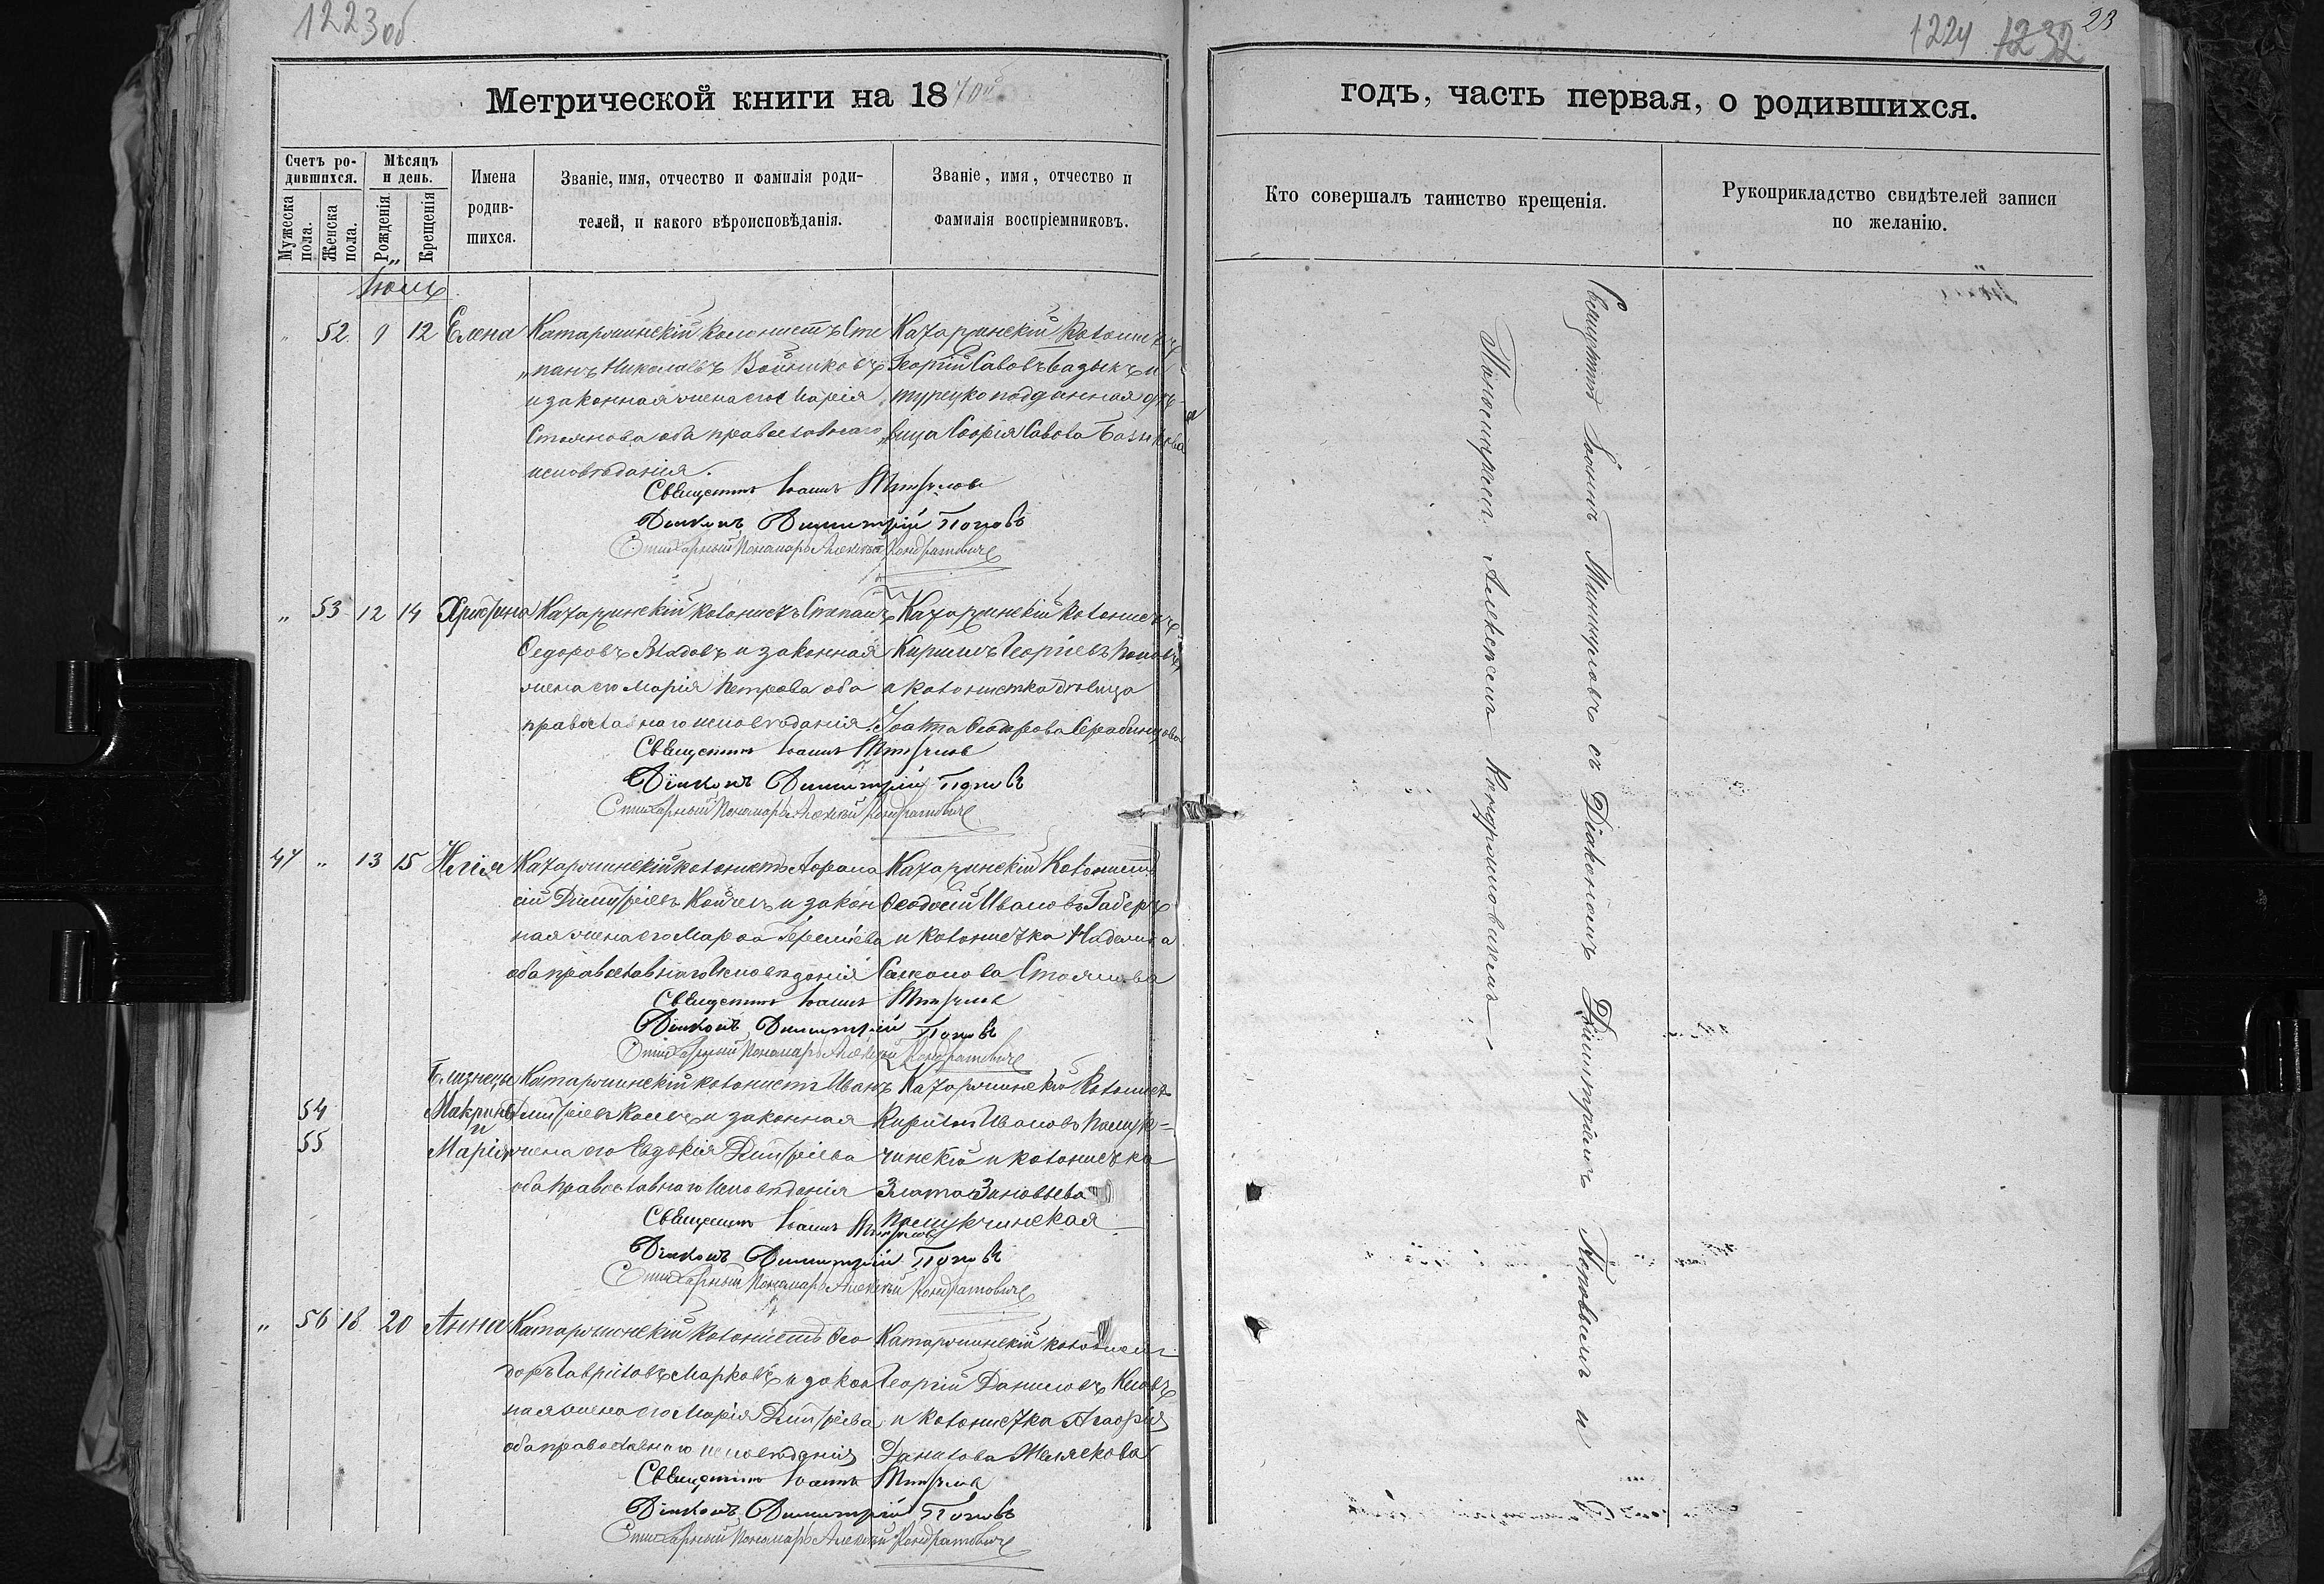 1223 об
1224 1232 23
Метрической книги на 1870й
годъ, часть первая, о родившихся.
Счетъ родившихся.
Мужеска пола.
Женска пола.
Мѣсяцъ и день.
Рожденія
Крещенія
Имена родившихся.
Званіе, имя, отчество и фамилія родителей, и какого вѣроисповѣданія.
Званіе, имя, отчество и фамилія воспріемниковъ.
Кто совершалъ таинство крещенія.
Рукоприкладство свидѣтелей записи по желанію.
Іюль
" 52 9 12 Елена
Катаржинскій колонистъ Сте
панъ Николаевъ Войниковъ
и законная жена его Марія
Стоянова оба православнаго
исповѣданія.
Катаржинскій колонистъ
Георгій Савовъ Базыкъ и
турецко подданная дѣ-
вица Софія Савова Базыкова
Священникъ Іоаннъ
Діаконъ Димитрій Поповъ
Стихарный Пономарь Алексѣй Кондратовичъ
" 53 12 14 Христина
Катаржинскій колонистъ Степанъ
Ѳедоровъ Владовъ и законная
жена его Марія Петрова оба
православнаго исповѣданія.
Катаржинскій колонистъ
Кириллъ Георгіевъ Поповъ
и колонистка дѣвица
Злата Ѳеодорова
Священникъ Іоаннъ
Діаконъ Димитрій Поповъ
Стихарный Пономарь Алексѣй Кондратовичъ
47 " 13 15 Илія
Катаржинскій колонистъ Аѳана
сій Димитріевъ Койчевъ и закон
ная жена его Марѳа
оба православнаго исповѣданія
Катаржинскій колонистъ
Ѳеодосій Ивановъ Габеръ
и колонистка
Симонова Стоянова
Священникъ Іоаннъ
Діаконъ Димитрій Поповъ
Стихарный Пономарь Алексѣй Кондратовичъ
54
55
Близнецы
Макрина
и
Марія
Катаржинскій колонистъ Иванъ
Димитріевъ и законная
жена его Евдокія Димитріева
оба православнаго исповѣданія
Катаржинскій колонистъ
Кириллъ Ивановъ Памук-
чинскій и колонистка
Злата Зиновьева
Памукчинская
Священникъ Іоаннъ
Діаконъ Димитрій Поповъ
Стихарный Пономарь Алексѣй Кондратовичъ
" 56 18 20 Анна
Катаржинскій колонистъ Ѳео
доръ Гавриловъ Марковъ и закон
ная жена его Марія Димитріева
оба православнаго исповѣданія
Катаржинскій колонистъ
Георгій Даниловъ
и колонистка Агафія
Данилова Желяскова
Священникъ Іоаннъ
Діаконъ Димитрій Поповъ
Стихарный Пономарь Алексѣй Кондратовичъ
Священникъ Іоаннъ съ Діакономъ Димитріемъ Поповымъ и
Пономаремъ Алексѣемъ Кондратовичемъ